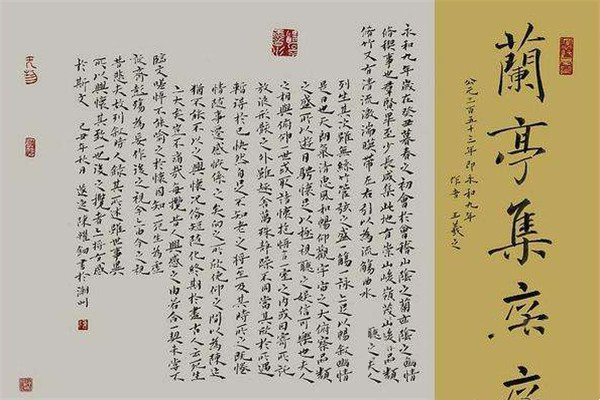 蘭亭集序
公元三百五十三年即永和九年
作者 王羲之
永和九年歲在癸丑暮春之初會於會稽山陰之蘭亭
脩禊事也羣賢畢至少長咸集此地有崇山峻嶺茂
脩竹又有清流激湍映帶左右引以為流觴曲水
列坐其次雖無絲竹管弦之盛一觴一詠亦足以暢敘幽情
是日也天朗氣清惠風和暢仰觀宇宙之大俯察品類
之盛所以遊目騁懷足以極視聽之娛信可樂也夫人
之相與俯仰一世或取諸懷抱悟言一室之內或因寄所託
放浪形骸之外雖趣舍萬殊靜躁不同當其欣於所遇
暫得於己快然自足不知老之將至及其所之既倦
情隨事遷感慨係之矣向之所欣俛仰之間以為陳迹
猶不能不以之興懷況脩短隨化終期於盡古人云死生
亦大矣豈不痛哉每攬昔人興感之由若合一契未嘗不
臨文嗟悼不能喻之於懷固知一死生為虛
誕齊彭殤為妄作後之視今亦由今之視
昔悲夫故列敘時人錄其所述雖世殊事異
所以興懷其致一也後之攬者亦將有感
於斯文 年秋日 陳耀 書於潮州